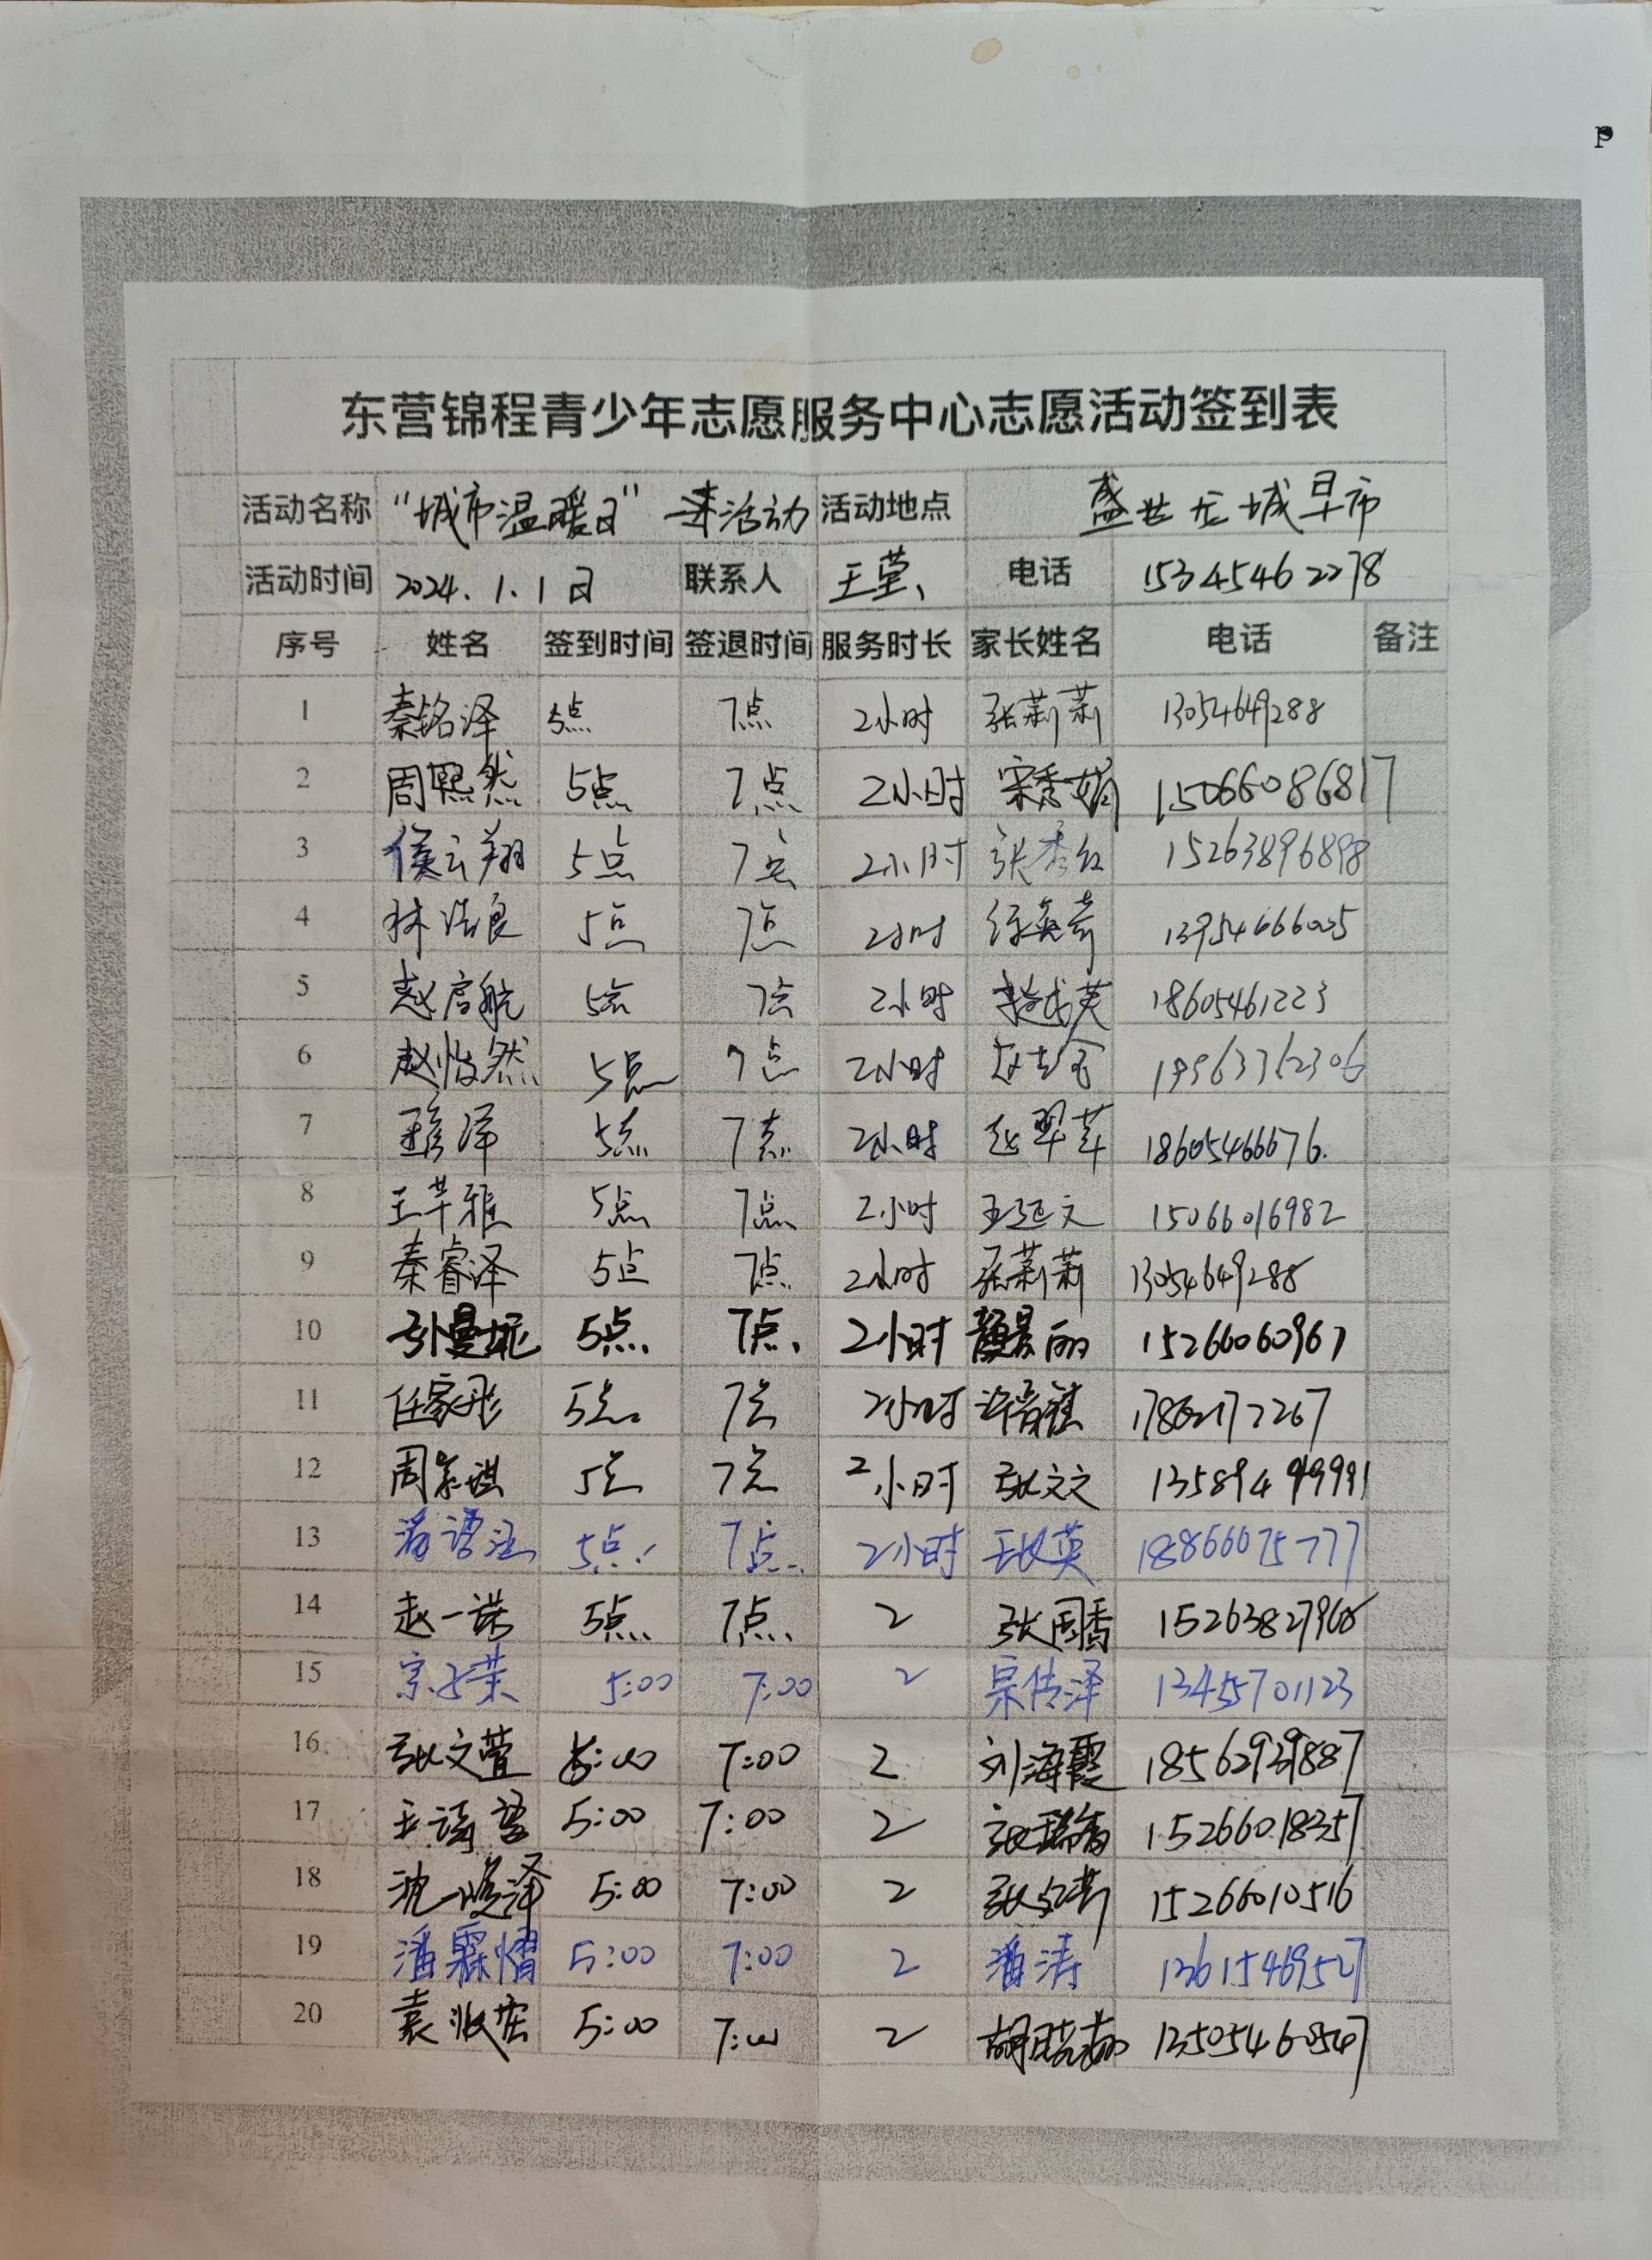 P
东营锦程青少年志愿服务中心志愿活动签到表
活动名称 “城市温暖日” 活动 活动地点 盛世龙城早市
活动时间 2024.1.1日 联系人 王莹 电话 15345462278
序号 姓名 签到时间 签退时间 服务时长 家长姓名 电话 备注
1 秦铭泽 5点 7点 2小时 张莉莉 13054649288
2 周熙然 5点 7点 2小时 宋秀娟 15066086817
3 侯云翔 5点 7点 2小时 张秀红 15263896898
4 林浩良 5点 7点 2小时 13954666025
5 赵启航 5点 7点 2小时 18605461223
6 赵怡然 5点 7点 2小时 19963362306
7 5点 7点 2小时 赵翠苹 18605466676.
8 王芊雅 5点 7点 2小时 王延文 15066016982
9 秦睿泽 5点 7点 2小时 张莉莉 13054649288
10 孙曼妮 5点. 7点. 2小时 颜景丽 15266060967
11 任家彤 5点. 7点 2小时 17862177267
12 周 琪 5点 7点 2小时 张文文 13589499991
13 5点. 7点. 2小时 英 18866075777
14 赵一诺 5点. 7点. 2 张国香 15263827968
15 5:00 7:00 2 宗传泽 13455701123
16 张文萱 5:00 7:00 2 刘海霞 18562939887
17 5:00 7:00 2 张瑞香 15266018357
18 沈 泽 5:00 7:00 2 15266010516
19 潘霖熠 5:00 7:00 2 潘涛 13615469527
20 袁 5:00 7:00 2 胡晓娜 13505460547